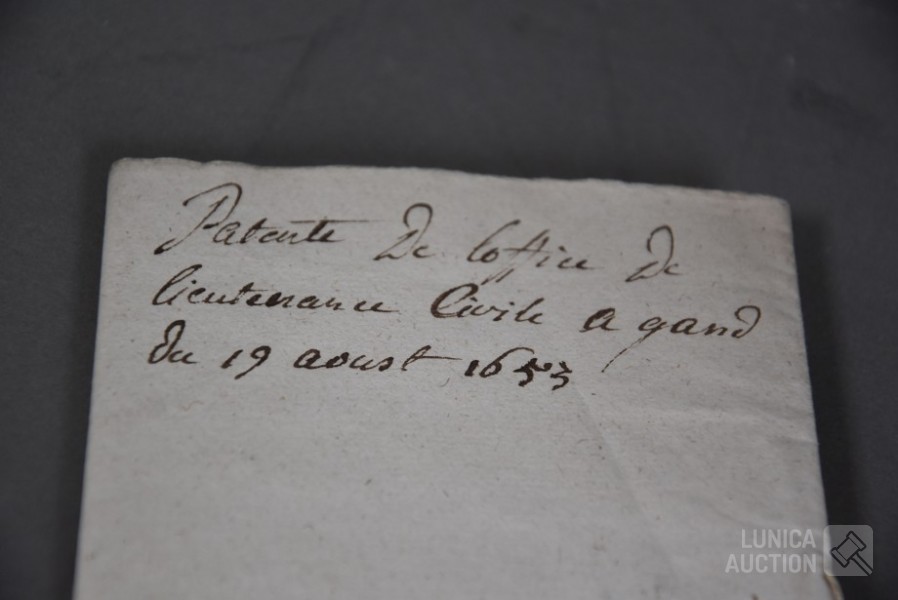 Patente De loffice de
lieutenance Civile a gand
du 19 aoust 1653
LUNICA
AUCTION